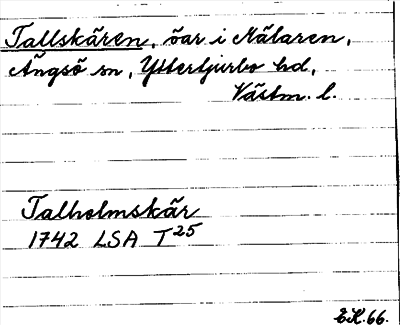 Tallskären, öar i Mälaren,
Ängsö sn, Yttertjurbo hd,
Västm. l.
Talholmskär
1742 LSA T25
E.K. 66.